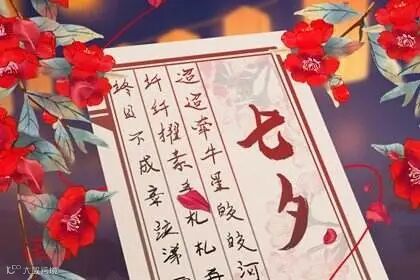 七夕
迢迢牵牛星皎皎河
纤纤擢素手札札弄
终日不成章泣涕
大威跨境